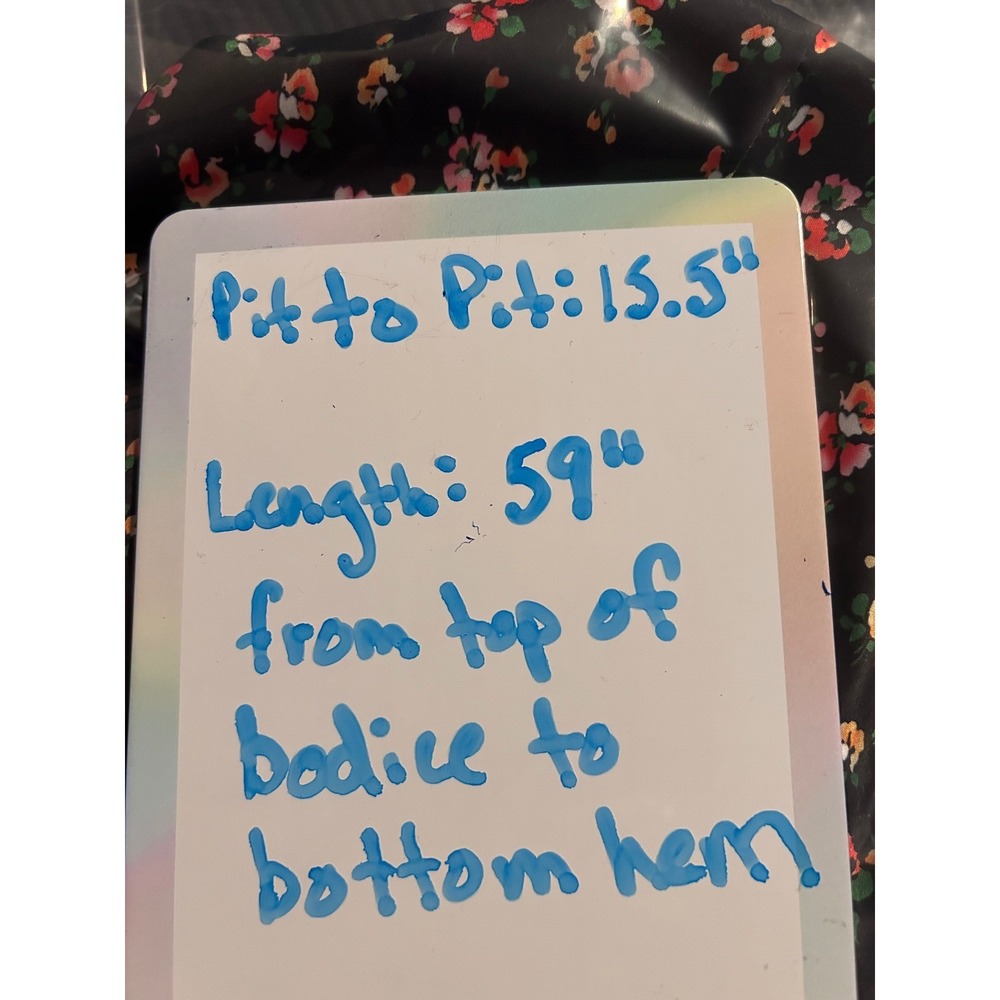 Pit to Pit: 15.5"
Length: 59"
from top of
bodice to
bottom hem